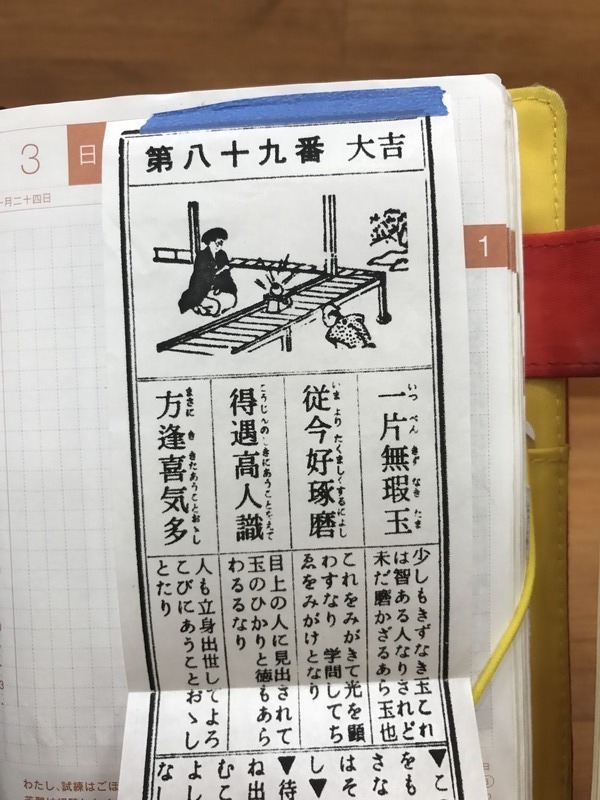 3
日
月二十四日
1
第八十九番 大吉
いつ ぺん きず なき たま
一片無瑕玉
いま より たくましくするによし
従今好琢磨
得遇高人識
方逢喜気多
少しもきずなき玉これ
は智ある人なりされど
未だ磨かざるあら玉也
これをみがきて光を顕
わすなり 学問してち
ゑをみがけとなり
目上の人に見出されて
玉のひかりと徳もあら
わるるなり
人も立身出世してよろ
こびにあうことおゝし
とたり
▼こ
をも
さな
はそ
し▼
▼待
ね出
むこ
よし
なし
わたし、試練はごほ